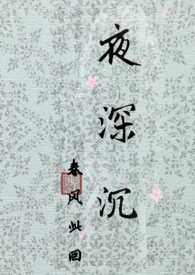 夜深沉
春风此回